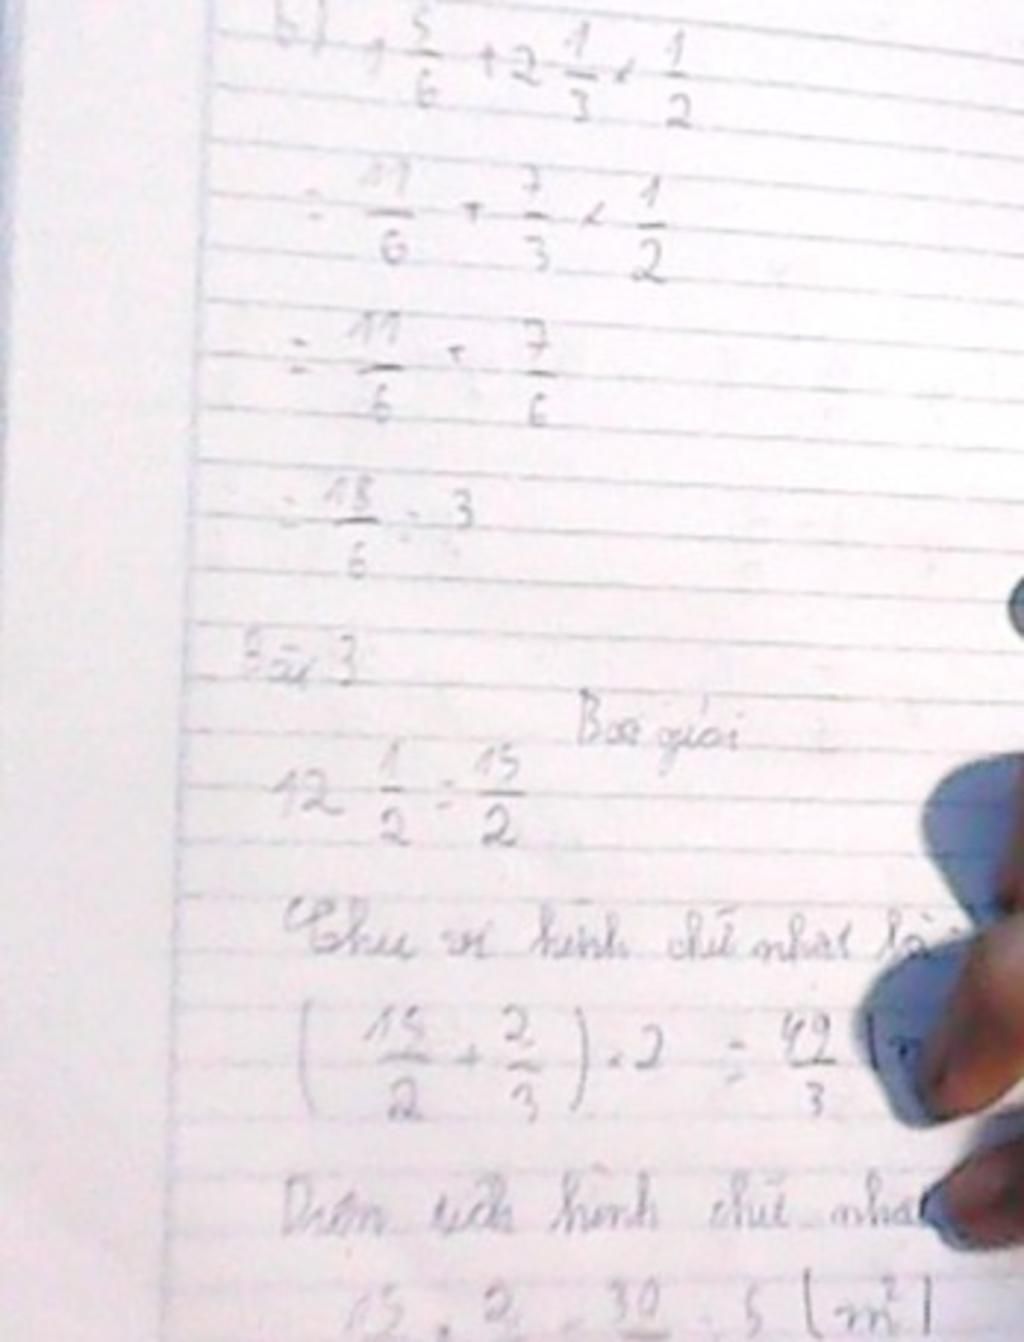 b) 1 5/6 + 2 1/3 × 1/2
= 11/6 + 7/3 × 1/2
= 11/6 + 7/6
= 18/6 = 3
Bài 3
Bài giải
12 1/2 = 15/2
Chu vi hình chữ nhật là
( 15/2 + 2/3 ) × 2 = 49/3 (m
Diện tích hình chữ nhật
15 × 2 = 30 = 5 (m²)